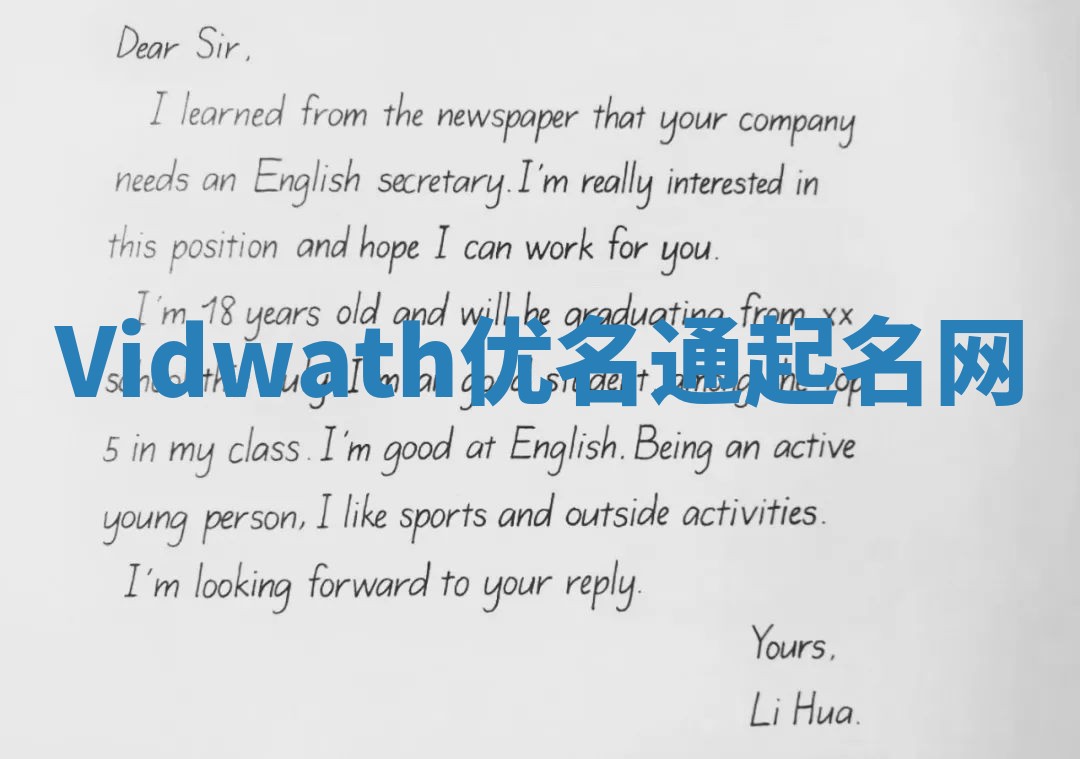 Dear Sir,
I learned from the newspaper that your company
needs an English secretary. I'm really interested in
this position and hope I can work for you.
I'm 18 years old and will be graduating from xx
Vidwath优名通起名网
5 in my class. I'm good at English. Being an active
young person, I like sports and outside activities.
I'm looking forward to your reply.
Yours,
Li Hua.